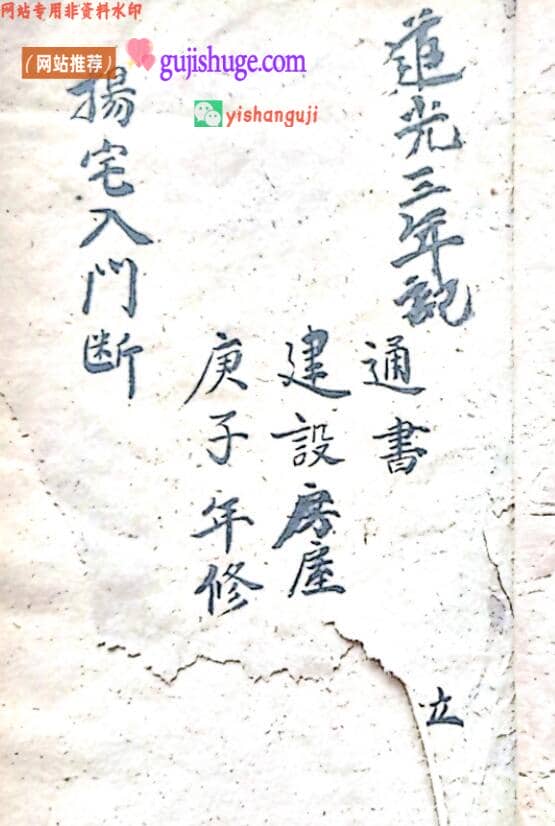 网站专用非资料水印
（网站推荐）
gujishuge.com
yishanguji
道光三年記
通書
建設房屋
庚子年修
揚宅入門断
立